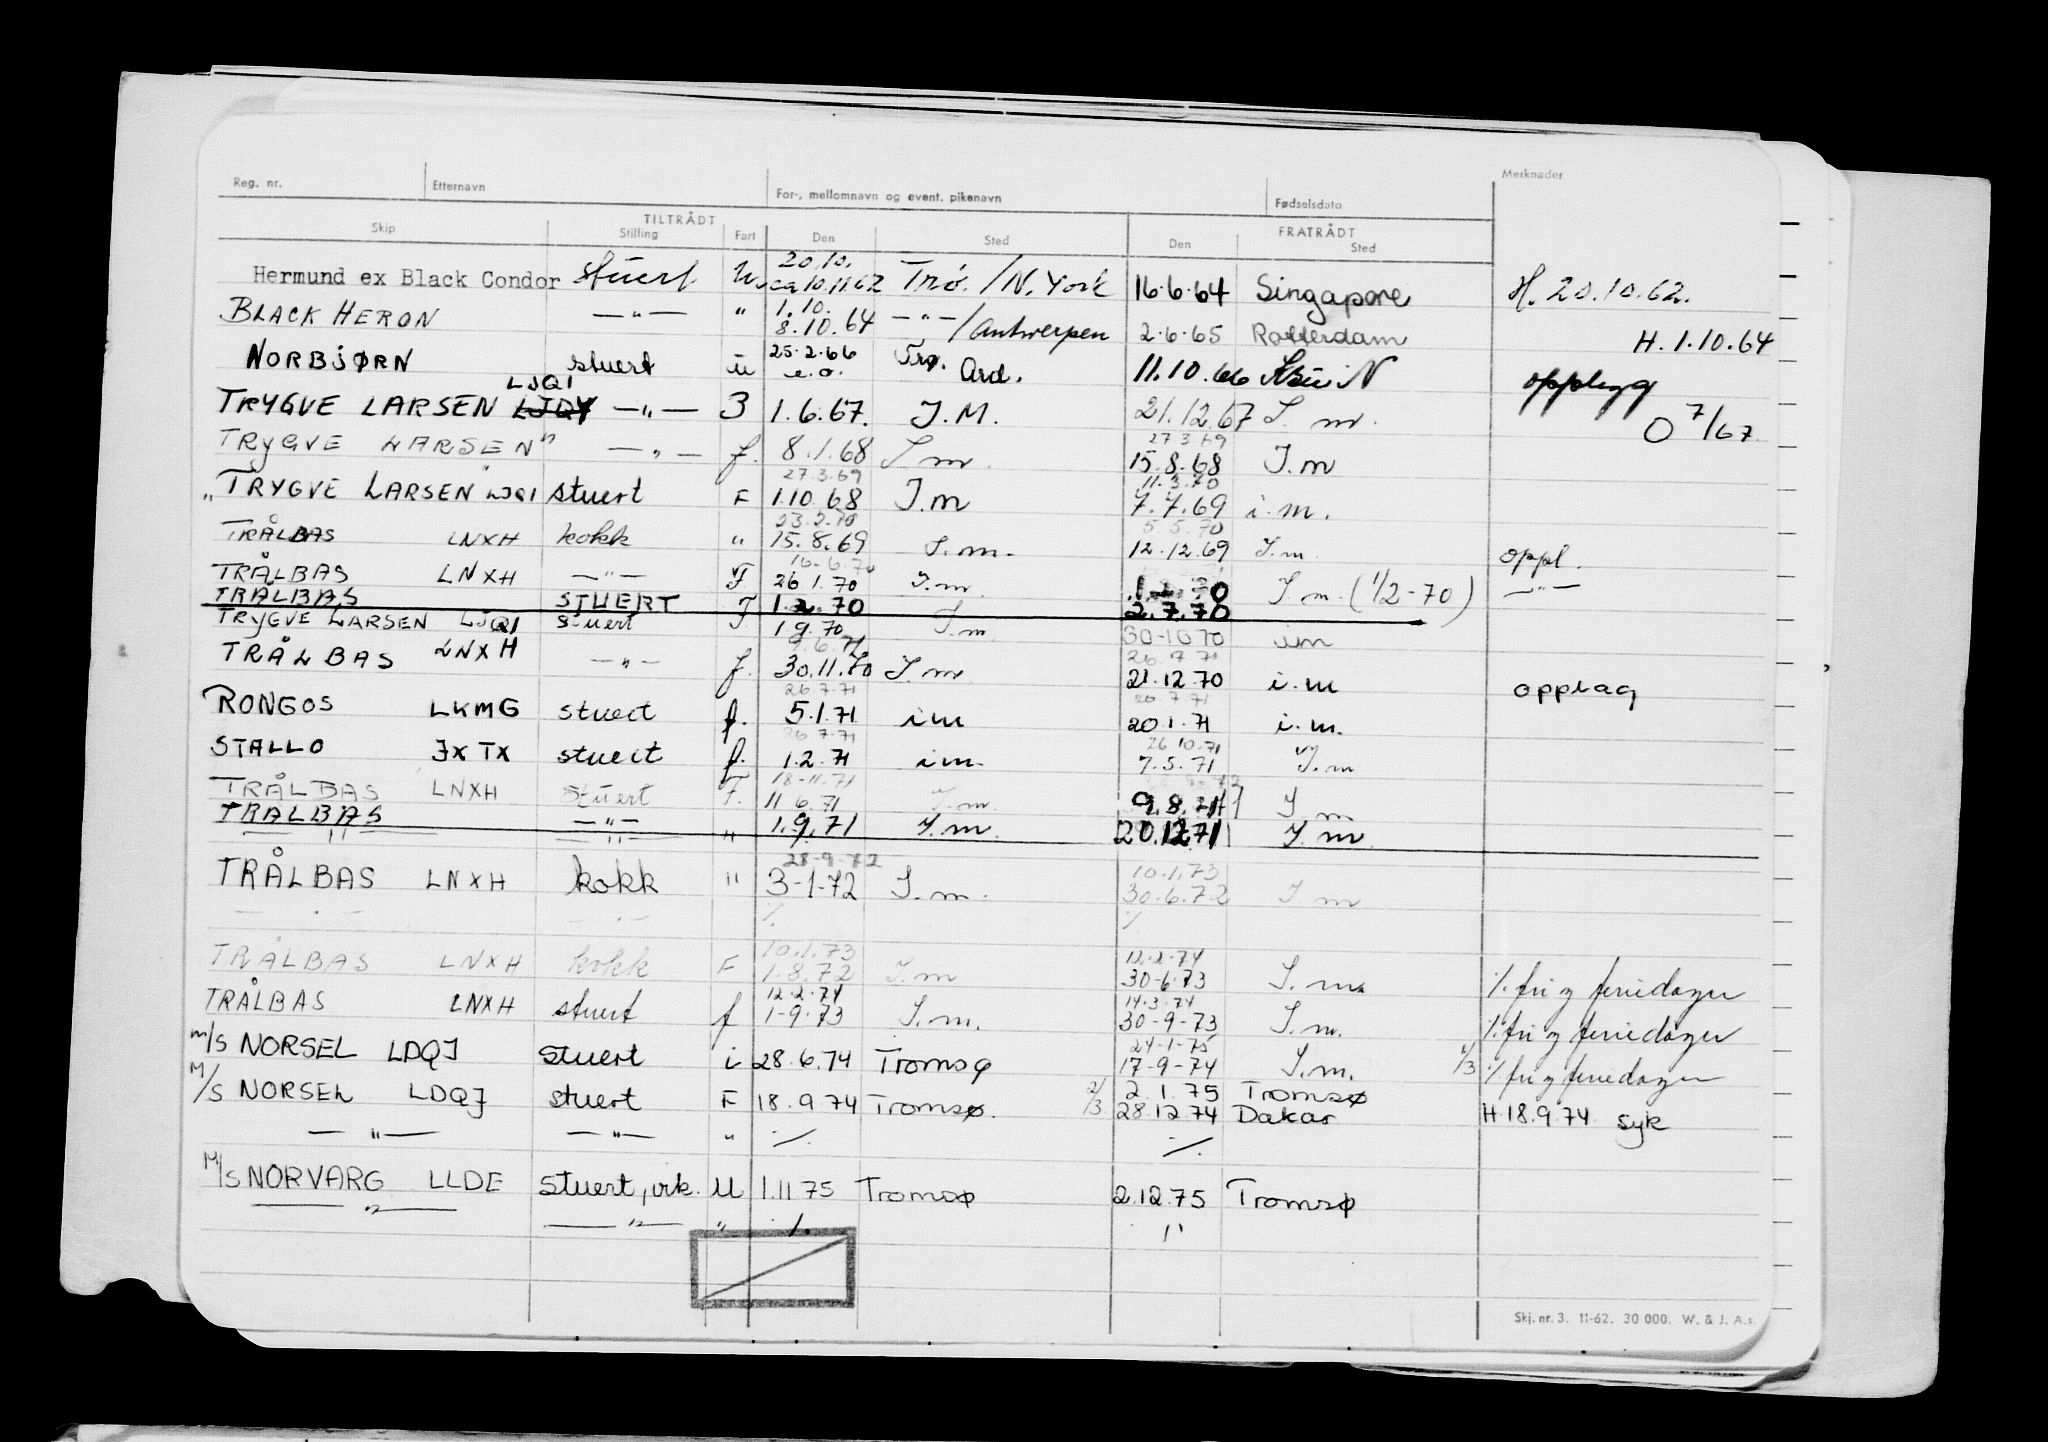 Reg. nr. Etternavn For-, mellomnavn og event. pikenavn Fødselsdato Merknader
TILTRÅDT FRATRÅDT
Skip Stilling Fart Den Sted Den Sted
20.10.
Hermund ex Black Condor stuert U ca 10.11 62 Trø. / N. York 16.6.64 Singapore H. 20.10.62.
1.10.
BLACK HERON —"— " 8.10.64 —"— / Antwerpen 2.6.65 Rotterdam H. 1.10.64
NORBJØRN stuert u 25.2.66 Trø. Ard. 11.10.66 N opplegg
LJQI
TRYGVE LARSEN LJQY —"— 3 1.6.67. I.M. 21.12.67 I. m. O 7/67
27 3 69
TRYGVE LARSEN " —"— f. 8.1.68 I m. 15.8.68 I.m
27.3.69 11.3.70
" TRYGVE LARSEN LJQI stuert F 1.10.68 I.m 7.7.69 i.m.
23.2.70 5 5.70
TRÅLBAS LNXH kokk " 15.8.69 I.m. 12.12.69 I.m. oppl.
16-6.70
TRÅLBAS LNXH —"— F 26 1.70 I.m. I.m. (1/2-70) —"—
TRÅLBAS STUERT F 1.2.70 I.m. 2.7.70
TRYGVE LARSEN LJQI stuert 1 9.70 30-10 70 im
9.6.71 26.7 71
TRÅLBAS LNXH —"— f. 30.11.70 I m 21.12.70 i.m opplag
26 7.71 26 7 71
RONGOS LKMG stuert f. 5.1.71 im 20.1.71 i.m.
26.7.71 26 10.71
STALLO JXTX stuert f. 1.2.71 im. 7.5.71 I.m
18-11.71
TRÅLBAS LNXH stuert F. 11 6.71 I.m. 9.8.71 I m
TRÅLBAS —"— " 1.9.71 I.m. 20.12.71 I.m
28-9-72 10.1.73
TRÅLBAS LNXH kokk " 3-1-72 I.m. 30.6.72 I m
— " — — " — ./. ./.
10.1.73 12.2.74
TRÅLBAS LNXH kokk F 1.8.72 I.m 30-6.73 I.m. ./. fri og feriedager
12.2.74 14.3.74
TRÅLBAS LNXH stuert f 1-9.73 I.m. 30-9-73 I.m. ./. fri og feriedager
24-1-75
m/s NORSEL LDQJ stuert i 28.6.74 Tromsø 17-9-74 I.m. 1/3 ./. fri og feriedager
2/3 2.1.75 Tromsø
M/S NORSEL LDQJ stuert F 18.9.74 Tromsø. 28.12.74 Dakar H 18.9.74 syk
—"— —"— " ./. ./.
M/S NORVARG LLDE Stuert, vik. U 1.11 75 Tromsø 2.12.75 Tromsø
—"— —"— " ./. "
Skj. nr. 3. 11-62. 30 000. W. & J. A.s.